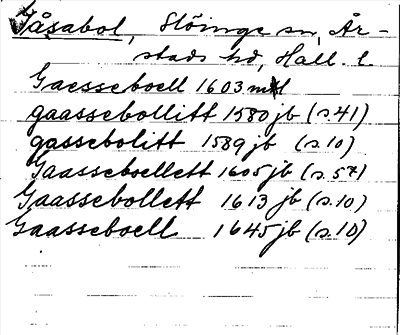 Gåsabol, Slöinge sn, År-
stads hd, Hall. l.
Gaesseboell 1603 mtl
gaassebollitt 1580 jb (s. 41)
gassebolitt 1589 jb (s. 10)
Gaasseboellett 1605 jb (s. 57)
Gaassebollett 1613 jb (s. 10)
Gaasseboell 1645 jb (s. 10)